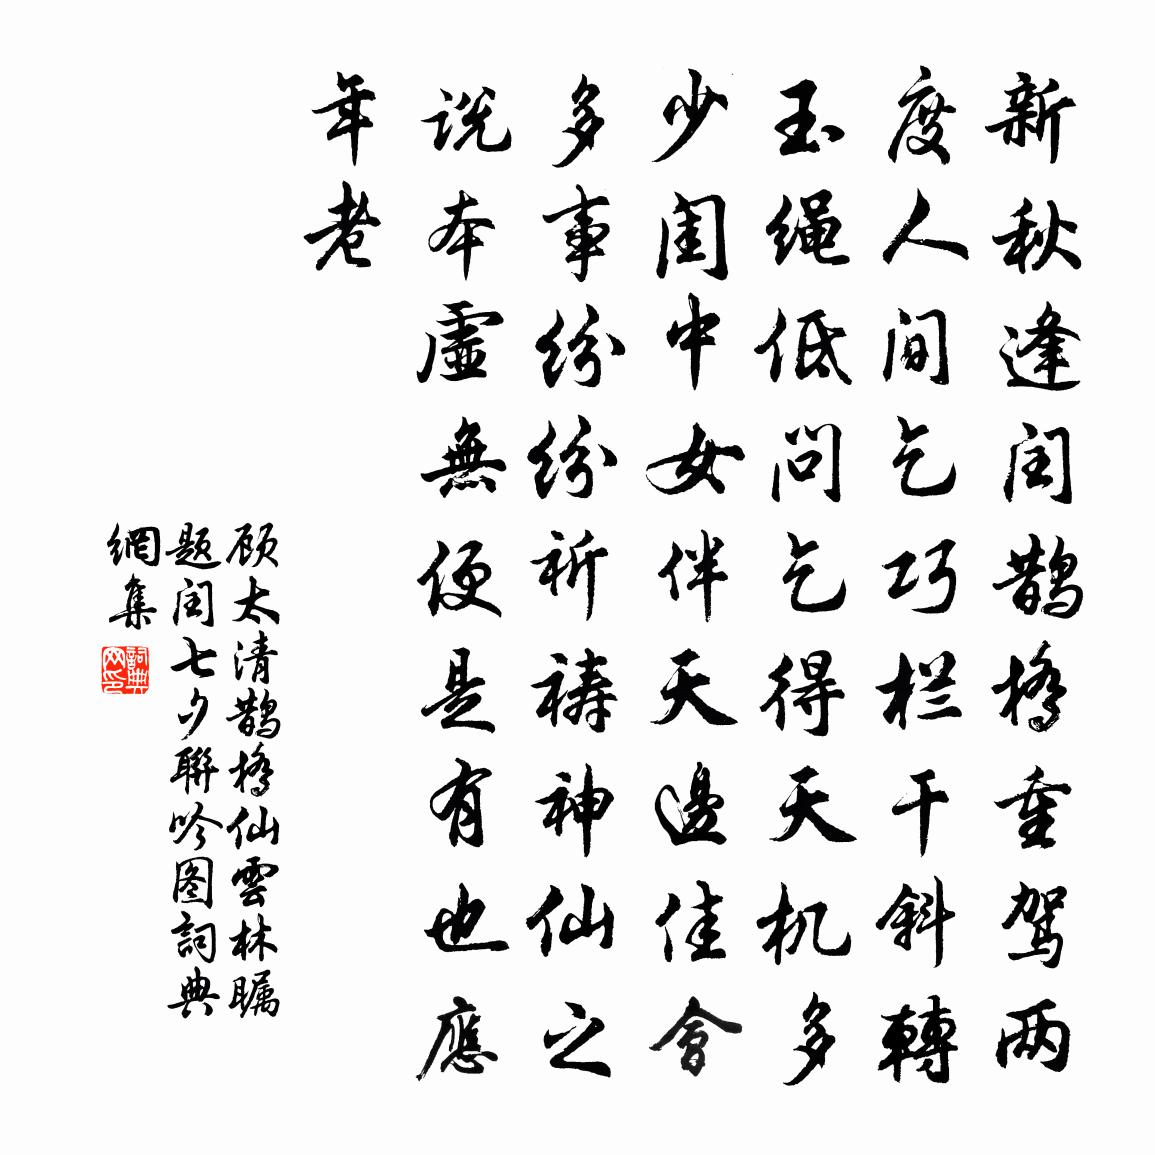 新秋逢闰鹊橋重驾两
度人间乞巧栏干斜轉
玉绳低问乞得天机多
少闺中女伴天邊佳會
多事纷纷祈祷神仙之
说本虚無便是有也應
年老
顾太清鹊橋仙雲林瞩
题闰七夕聯吟图詞典
網集
詞典网印